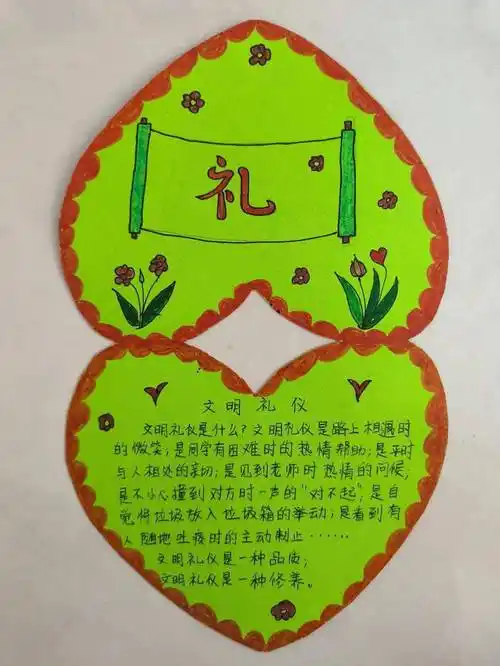 礼
文明礼仪
文明礼仪是什么？文明礼仪是路上相遇时
的微笑；是同学有困难时的热情帮助；是平时
与人相处的亲切；是见到老师时热情的问候；
是不小心撞到对方时一声的“对不起”；是自
觉将垃圾放入垃圾箱的举动；是看到有
人随地吐痰时的主动制止……
文明礼仪是一种品质；
文明礼仪是一种修养。